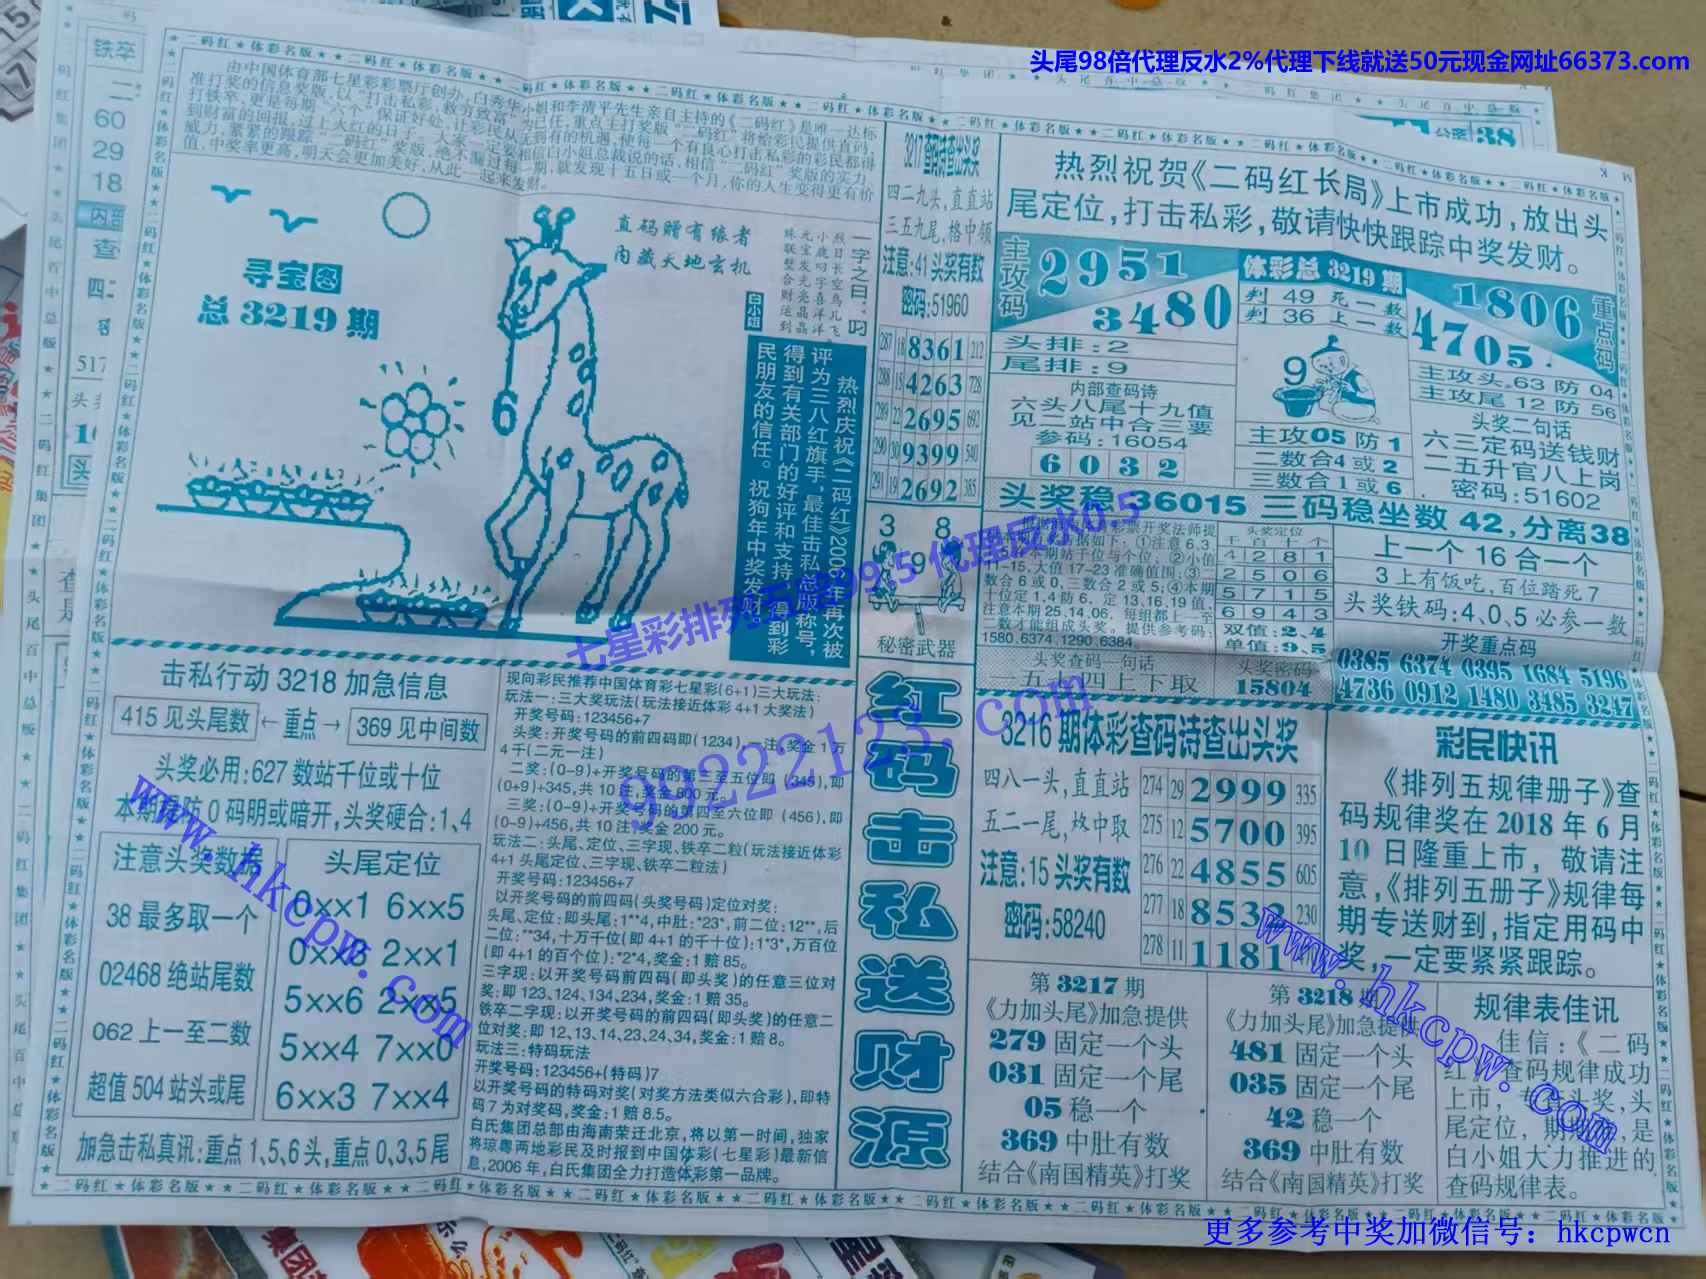 头尾98倍代理反水2%代理下线就送50元现金网址66373.com
二码红★体彩名版
由中国体育部七星彩彩票厅创办,白秀华小姐和李清平先生亲自主持的《二码红》是唯一达标
寻宝图
总3219期
直码赠有缘者
内藏天地玄机
白小姐
一字之曰:叼
烈日长空鸟儿飞
小鹿叼字喜洋洋
元宝发光亮晶晶
珠联璧合财运到
热烈庆祝《二码红》2006年再次被
评为三八红旗手,最佳击私总版称号,
得到有关部门的好评和支持,得到彩
民朋友的信任。祝狗年中奖发财。
6
3217查码诗查出头奖
四二九头,直直站
三五九尾,格中领
注意:41头奖有数
密码:51960
287 18 8361 212
288 15 4263 728
289 22 2695 692
290 30 9399 540
291 19 2692 385
3 8
9
秘密武器
热烈祝贺《二码红长局》上市成功,放出头
尾定位,打击私彩,敬请快快跟踪中奖发财。
主攻码
2951
3480
体彩总3219期
判49死一数
判36上一数
1806
4705
重点码
头排:2
尾排:9
内部查码诗
六头八尾十九值
见二站中合三要
参码:16054
6 0 3 2
9
主攻05防1
二数合4或2
三数合1或6
主攻头63防04
主攻尾12防56
头奖二句话
六三定码送钱财
二五升官八上岗
密码:51602
头奖稳36015三码稳坐数42,分离38
十位定1,4防6,定13,16,19值,
注意本期25,14,06,每组都上一至
二数才能组成头奖。提供参考码:
1580.6374.1290.6384.
头奖定位
4 2 8 1
2 5 0 6
5 7 1 5
6 9 4 3
双值:2、4
单值:9、5
头奖查码一句话
一五二四上下取
头奖密码
15804
上一个16合一个
3上有饭吃,百位踏死7
头奖铁码:4、0、5必参一数
开奖重点码
0385 6374 0395 1684 5196
4736 0912 1480 3485 3247
击私行动3218加急信息
415见头尾数 ←重点→ 369见中间数
头奖必用:627数站千位或十位
本期重防0码明或暗开,头奖硬合:1、4
注意头奖数据
38最多取一个
02468绝站尾数
062上一至二数
超值504站头或尾
头尾定位
0××1 6××5
0××3 2××1
5××6 2××5
5××4 7××0
6××3 7××4
加急击私真讯:重点1、5、6头,重点0、3、5尾
现向彩民推荐中国体育彩七星彩(6+1)三大玩法:
玩法一:三大奖玩法(玩法接近体彩4+1大奖法)
开奖号码:123456+7
头奖:开奖号码的前四码即(1234)一注,奖金1万
4千(二元一注)
二奖:(0-9)+开奖号码的第三至五位即(345),即
(0+9)+345,共10注,奖金800元。
三奖:(0-9)+开奖号码的第四至六位即(456),即
(0-9)+456,共10注,奖金200元。
玩法二:头尾、定位、三字现、铁卒二粒(玩法接近体彩
4+1头尾定位、三字现、铁卒二粒法)
开奖号码:123456+7
以开奖号码的前四码(头奖号码)定位对奖:
头尾、定位:即头尾:1**4,中肚:*23*,前二位:12**,后
二位:**34,十万千位(即4+1的千十位):1*3*,万百位
(即4+1的百个位):*2*4,奖金:1赔85。
三字现:以开奖号码前四码(即头奖)的任意三位对
奖:即123、124、134、234,奖金:1赔35。
铁卒二字现:以开奖号码的前四码(即头奖)的任意二
位对奖:即12、13、14、23、24、34,奖金:1赔8。
玩法三:特码玩法
开奖号码:123456+(特码)7
以开奖号码的特码对奖(对奖方法类似六合彩),即特
码7为对奖码,奖金:1赔8.5。
白氏集团总部由海南荣迁北京,将以第一时间,独家
将琼粤两地彩民及时报到中国体彩(七星彩)最新信
息,2006年,白氏集团全力打造体彩第一品牌。
红码击私送财源
3216期体彩查码诗查出头奖
四八一头,直直站
五二一尾,炇中取
注意:15头奖有数
密码:58240
274 29 2999 335
275 12 5700 395
276 22 4855 605
277 18 8532 230
278 11 1181
彩民快讯
《排列五规律册子》查
码规律奖在2018年6月
10日隆重上市,敬请注
意,《排列五册子》规律每
期专送财到,指定用码中
奖,一定要紧紧跟踪。
第3217期
《力加头尾》加急提供
279固定一个头
031固定一个尾
05稳一个
369中肚有数
结合《南国精英》打奖
第3218期
《力加头尾》加急提供
481固定一个头
035固定一个尾
42稳一个
369中肚有数
结合《南国精英》打奖
规律表佳讯
佳信:《二码
红》查码规律成功
上市,专持头奖,头
尾定位,期期是,是
白小姐大力推进的
查码规律表。
七星彩排列五赔99.5 代理反水0.5
90222123.com
www.hkcpw.com
www.hkcpw.com
更多参考中奖加微信号：hkcpwcn